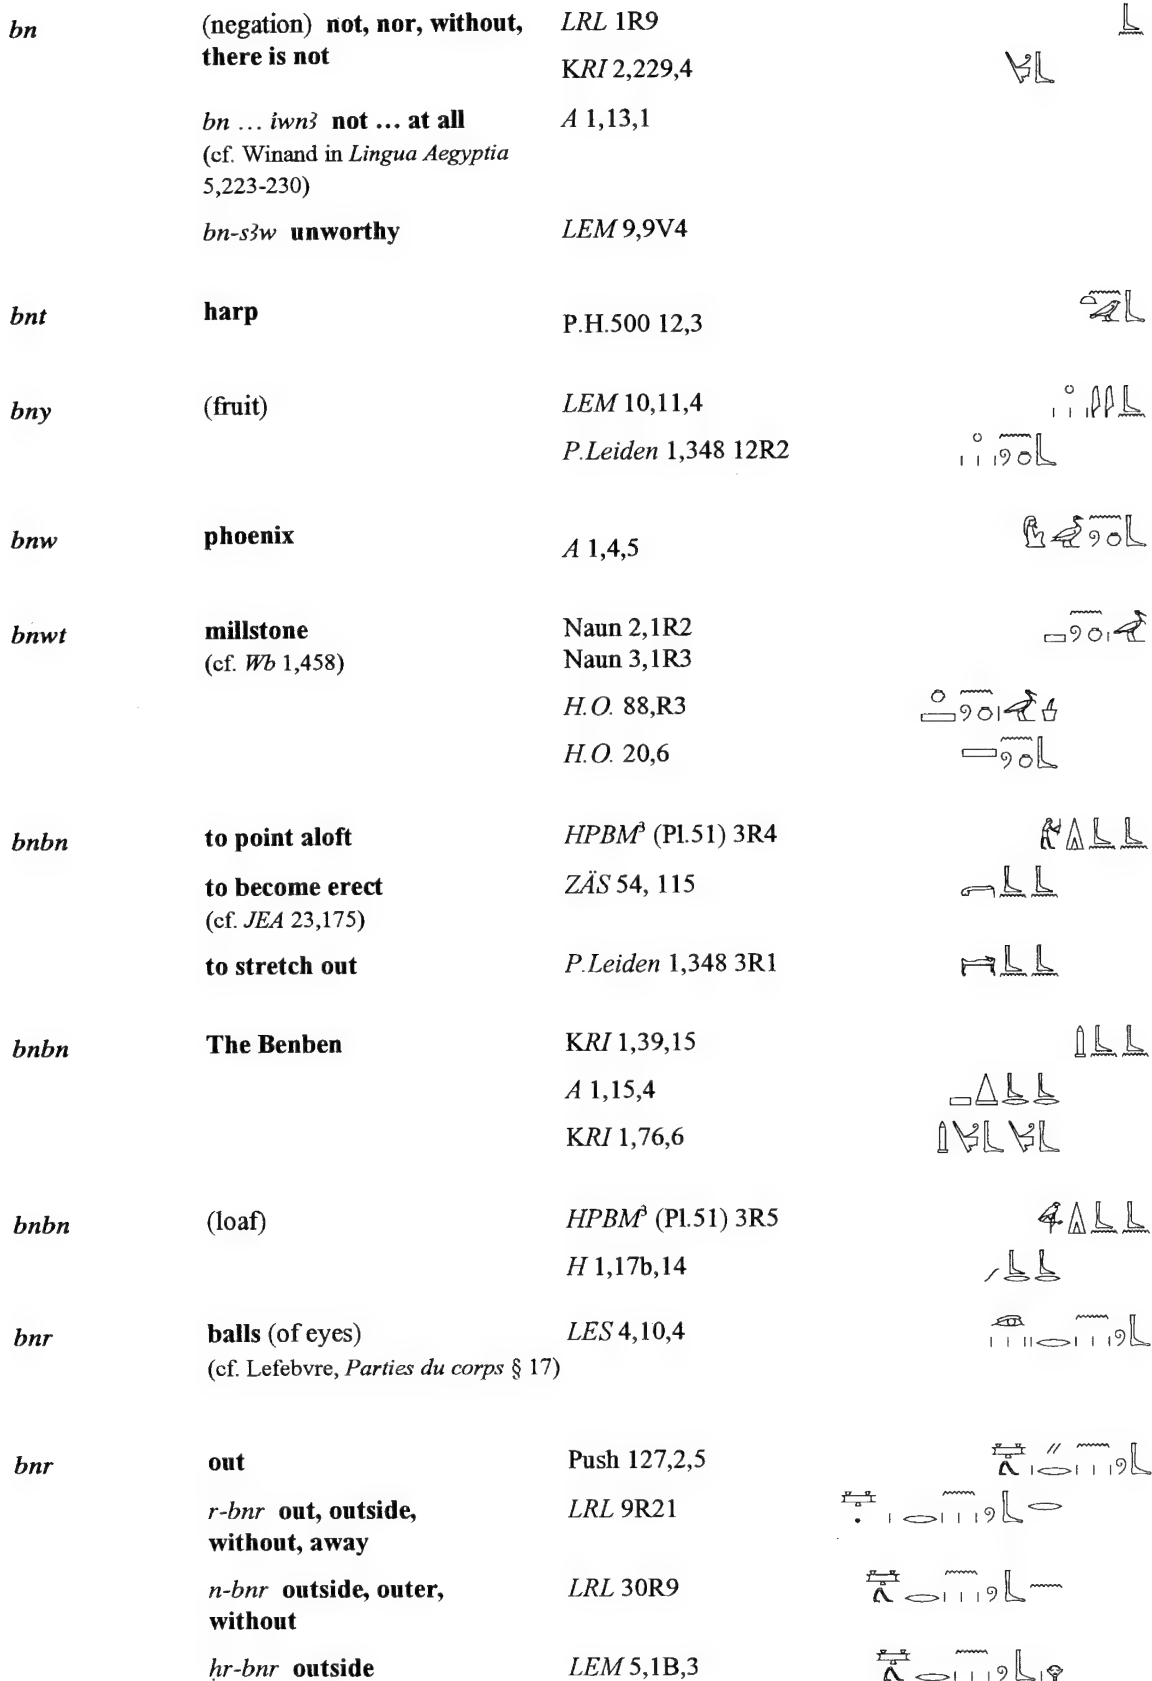 bn (negation) not, nor, without, LRL 1R9
there is not
KRI 2,229,4
bn … iwnꜣ not … at all A 1,13,1
(cf. Winand in Lingua Aegyptia
5,223-230)
bn-sꜣw unworthy LEM 9,9V4
bnt harp P.H.500 12,3
bny (fruit) LEM 10,11,4
P.Leiden 1,348 12R2
bnw phoenix A 1,4,5
bnwt millstone Naun 2,1R2
(cf. Wb 1,458) Naun 3,1R3
H.O. 88,R3
H.O. 20,6
bnbn to point aloft HPBM³ (Pl.51) 3R4
to become erect ZÄS 54, 115
(cf. JEA 23,175)
to stretch out P.Leiden 1,348 3R1
bnbn The Benben KRI 1,39,15
A 1,15,4
KRI 1,76,6
bnbn (loaf) HPBM³ (Pl.51) 3R5
H 1,17b,14
bnr balls (of eyes) LES 4,10,4
(cf. Lefebvre, Parties du corps § 17)
bnr out Push 127,2,5
r-bnr out, outside, LRL 9R21
without, away
n-bnr outside, outer, LRL 30R9
without
ḥr-bnr outside LEM 5,1B,3